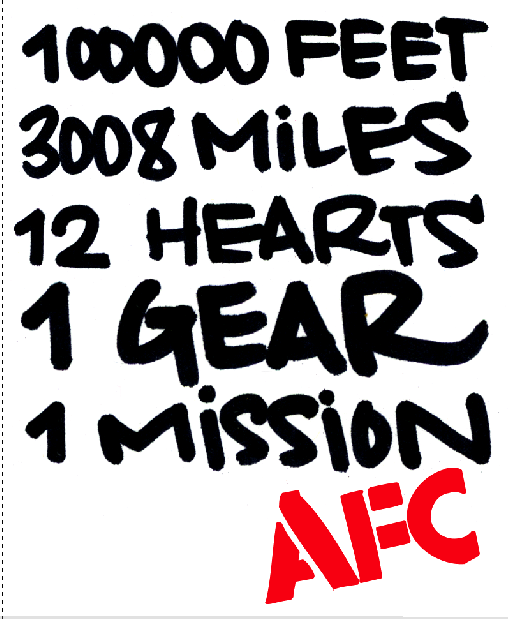 100000 FEET
3008 MiLES
12 HEARTS
1 GEAR
1 MiSSiON
AFC